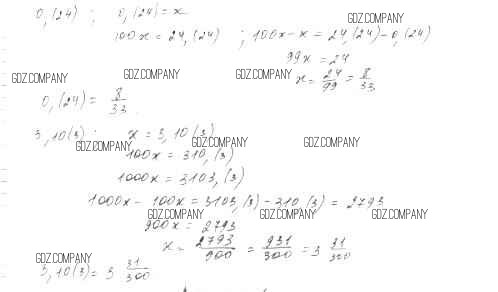 0,(24) ; 0,(24) = x
GDZ.COMPANY
100x = 24,(24) ; 100x - x = 24,(24) - 0,(24)
99x = 24
GDZ.COMPANY GDZ.COMPANY GDZ.COMPANY
x = 24/99 = 8/33
0,(24) = 8/33
3,10(3) ; x = 3,10(3)
GDZ.COMPANY GDZ.COMPANY GDZ.COMPANY
100x = 310,(3)
1000x = 3103,(3)
1000x - 100x = 3103,(3) - 310,(3) = 2793
GDZ.COMPANY GDZ.COMPANY GDZ.COMPANY
900x = 2793
x = 2793/900 = 931/300 = 3 31/300
GDZ.COMPANY
3,10(3) = 3 31/300